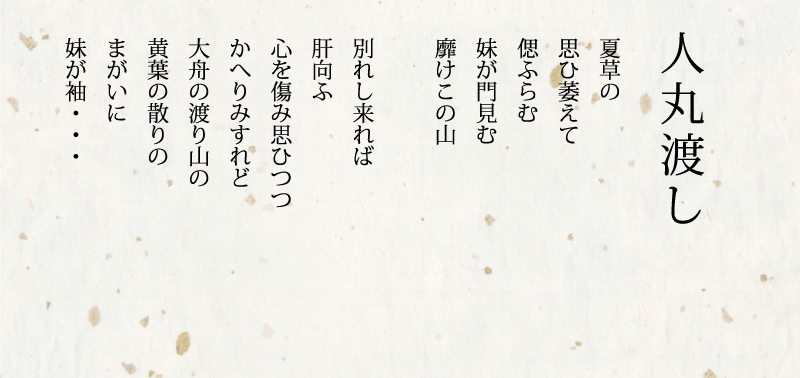 人丸渡し
夏草の
思ひ萎えて
偲ふらむ
妹が門見む
靡けこの山
別れし来れば
肝向ふ
心を傷み思ひつつ
かへりみすれど
大舟の渡り山の
黄葉の散りの
まがいに
妹が袖・・・